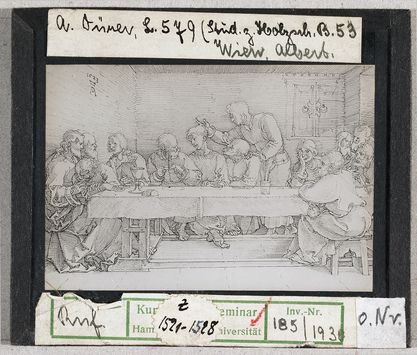 A. Dürer, L. 579 (Stud. z. Holzsch. B. 53
Wien, Albert.
1523
Kun eminar
Ham niversität
z
1521-1528
Inv.-Nr.
185/193
o. Nr.